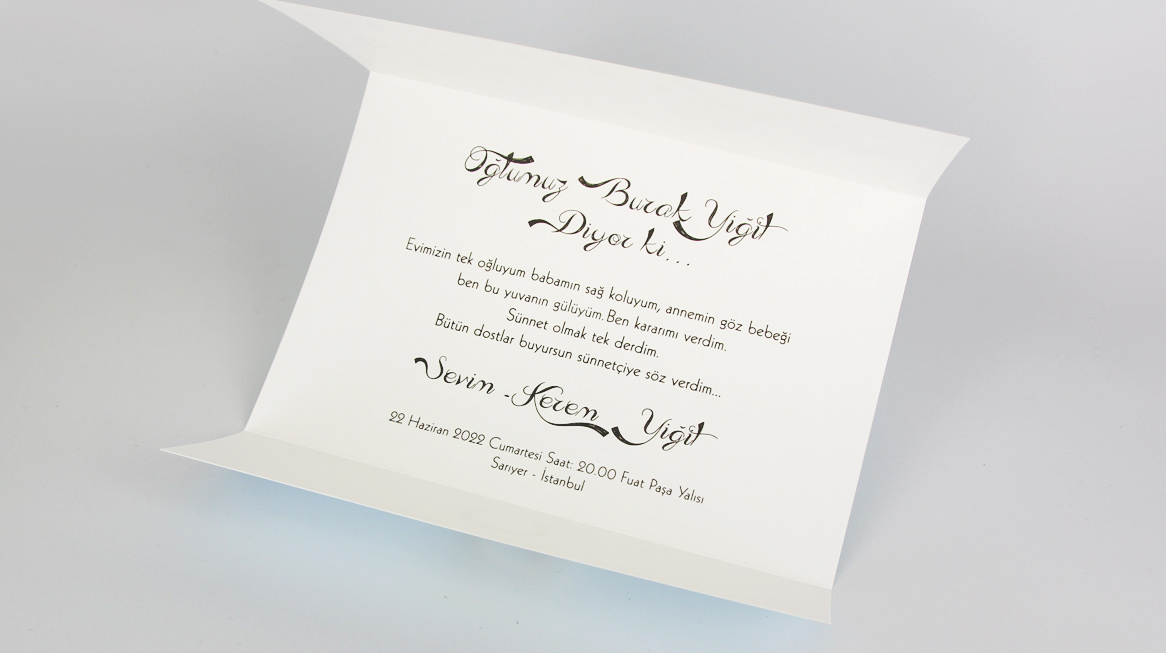 Oğlumuz Burak Yiğit
Diyor ki...
Evimizin tek oğluyum babamın sağ koluyum, annemin göz bebeği
ben bu yuvanın gülüyüm. Ben kararımı verdim.
Sünnet olmak tek derdim.
Bütün dostlar buyursun sünnetçiye söz verdim...
Sevin - Kerem Yiğit
22 Haziran 2022 Cumartesi Saat: 20.00 Fuat Paşa Yalısı
Sarıyer - İstanbul